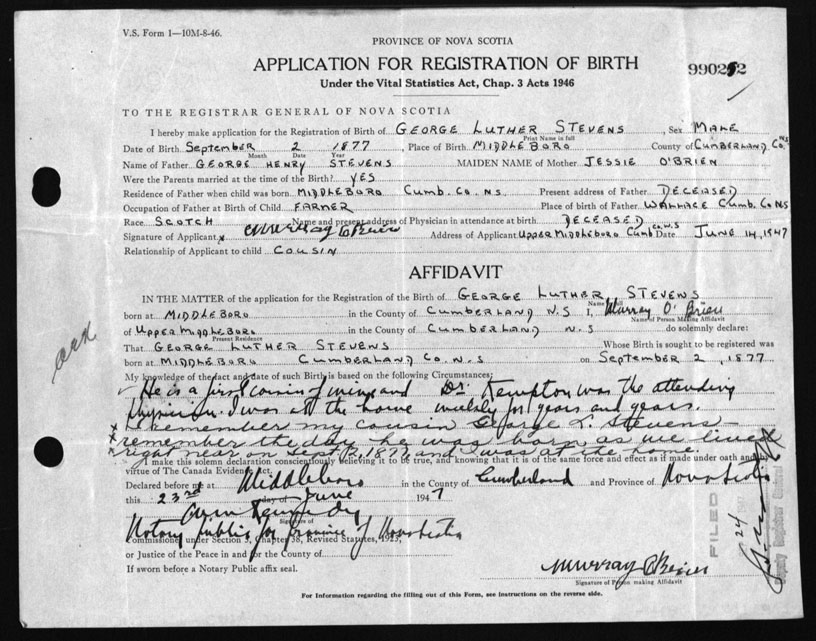 V.S. Form 1—10M-8-46.
PROVINCE OF NOVA SCOTIA
APPLICATION FOR REGISTRATION OF BIRTH
990252
Under the Vital Statistics Act, Chap. 3 Acts 1946
TO THE REGISTRAR GENERAL OF NOVA SCOTIA
I hereby make application for the Registration of Birth of GEORGE LUTHER STEVENS Sex MALE
Print Name in full
Date of Birth September 2 1877, Place of Birth MIDDLEBORO County of CUMBERLAND Co. N.S
Month Date Year
Name of Father GEORGE HENRY STEVENS MAIDEN NAME of Mother JESSIE O'BRIEN
Were the Parents married at the time of the Birth? YES
Residence of Father when child was born MIDDLEBORO Cumb. Co. N.S. Present address of Father DECEASED
Occupation of Father at Birth of Child FARMER Place of birth of Father WALLACE Cumb. Co NS
Race SCOTCH Name and present address of Physician in attendance at birth DECEASED
Signature of Applicant x Murray O'Brien Address of Applicant UPPER MIDDLEBORO Cumb Co. N.S Date JUNE 14, 1947
Relationship of Applicant to child COUSIN
AFFIDAVIT
IN THE MATTER of the application for the Registration of the Birth of GEORGE LUTHER STEVENS
Name in full
born at MIDDLEBORO in the County of CUMBERLAND N.S I, Murray O'Brien
Name of Person Making Affidavit
of UPPER MIDDLEBORO in the County of CUMBERLAND N.S do solemnly declare:
Present Residence
THAT GEORGE LUTHER STEVENS Whose Birth is sought to be registered was
born at MIDDLEBORO CUMBERLAND Co. N.S on SEPTEMBER 2, 1877
My knowledge of the fact and date of such Birth is based on the following Circumstances:
He is a first cousin of mine and Dr. Kempton was the attending
physician. I was at the home weekly for years and years.
I remember my cousin George L. Stevens
remember the day he was born as we lived
right near on Sept 2, 1877 and I was at the home.
I make this solemn declaration conscientiously believing it to be true, and knowing that it is of the same force and effect as if made under oath and by
virtue of The Canada Evidence Act.
Declared before me at Middleboro in the County of Cumberland and Province of Nova Scotia
this 23rd day of June 1947
Kennedy
Signature of
Notary public for province of Nova Scotia
Commissioner under Section 3, Chapter 38, Revised Statutes, 1923,
or Justice of the Peace in and for the County of
If sworn before a Notary Public affix seal.
Murray O'Brien
Signature of Person making Affidavit
For Information regarding the filling out of this Form, see instructions on the reverse side.
FILED
24
Deputy Registrar General